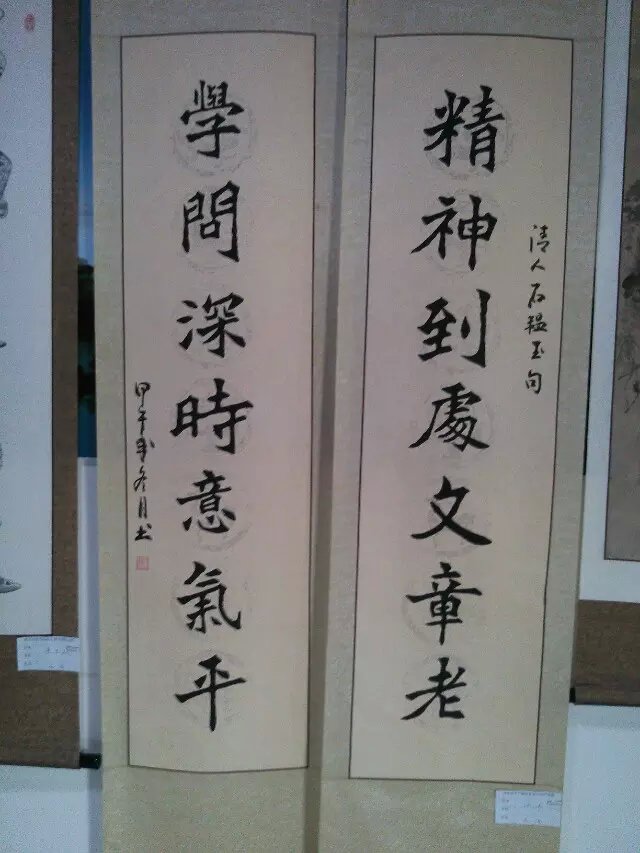 精神到處文章老
清人石韞玉句
學問深時意氣平
甲午年冬月書